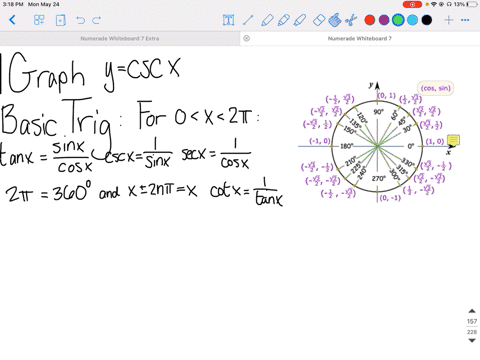 3:18 PM Mon May 24
13%
Numerade Whiteboard 7 Extra
Numerade Whiteboard 7
Graph y=cscx
Basic Trig: For 0<x<2π:
tanx = sinx/cosx cscx = 1/sinx secx = 1/cosx
2π = 360° and x±2nπ=x cotx = 1/tanx
(cos, sin)
y
(0, 1)
(-1/2, √3/2)
(1/2, √3/2)
(-√2/2, √2/2)
(√2/2, √2/2)
(-√3/2, 1/2)
(√3/2, 1/2)
120°
90°
60°
135°
45°
150°
30°
(-1, 0)
180°
0°
(1, 0)
x
210°
330°
225°
315°
240°
270°
300°
(-√3/2, -1/2)
(√3/2, -1/2)
(-√2/2, -√2/2)
(√2/2, -√2/2)
(-1/2, -√3/2)
(1/2, -√3/2)
(0, -1)
157
228